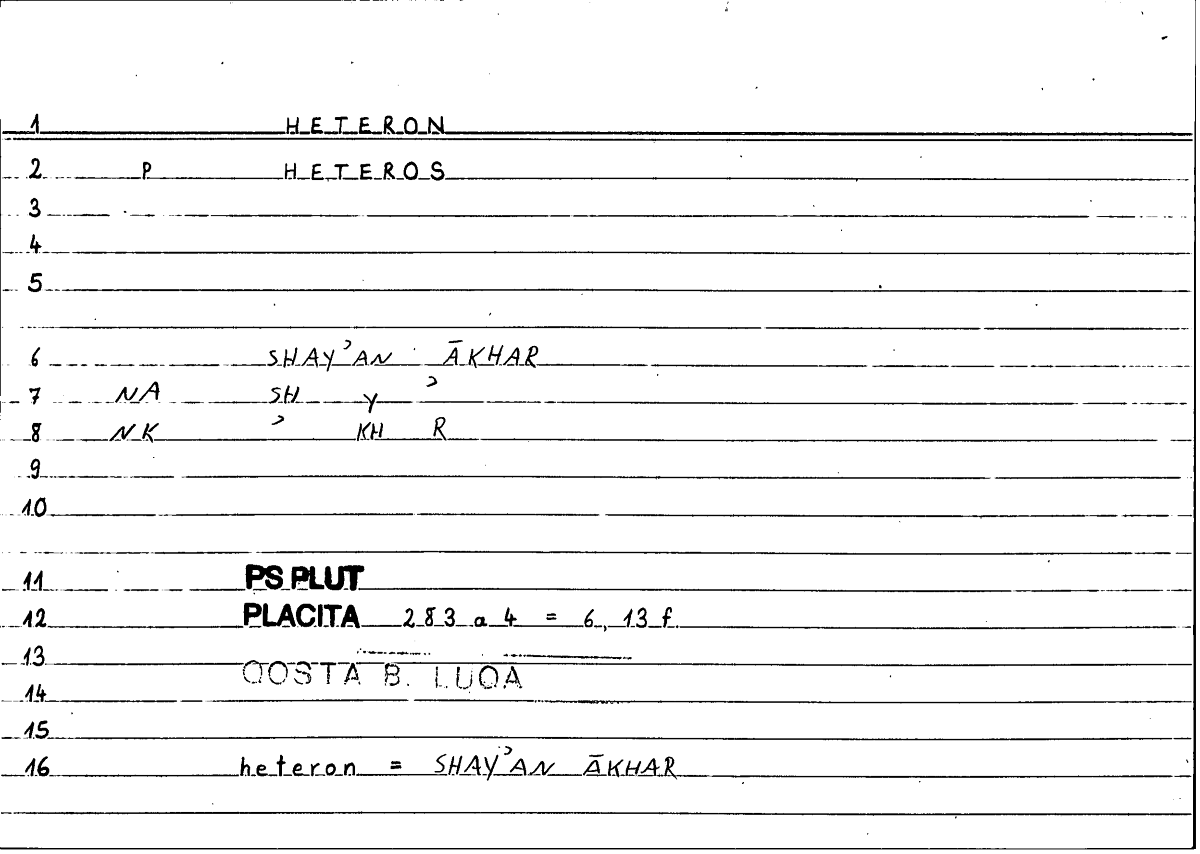 1 HETERON
2 P HETEROS
3
4
5
6 SHAYʾAN ĀKHAR
7 NA SH Y ʾ
8 NK ʾ KH R
9
10
11 PS PLUT
12 PLACITA 283 a 4 = 6, 13 f.
13
QOSTA B. LUQA
14
15
16 heteron = SHAYʾAN ĀKHAR